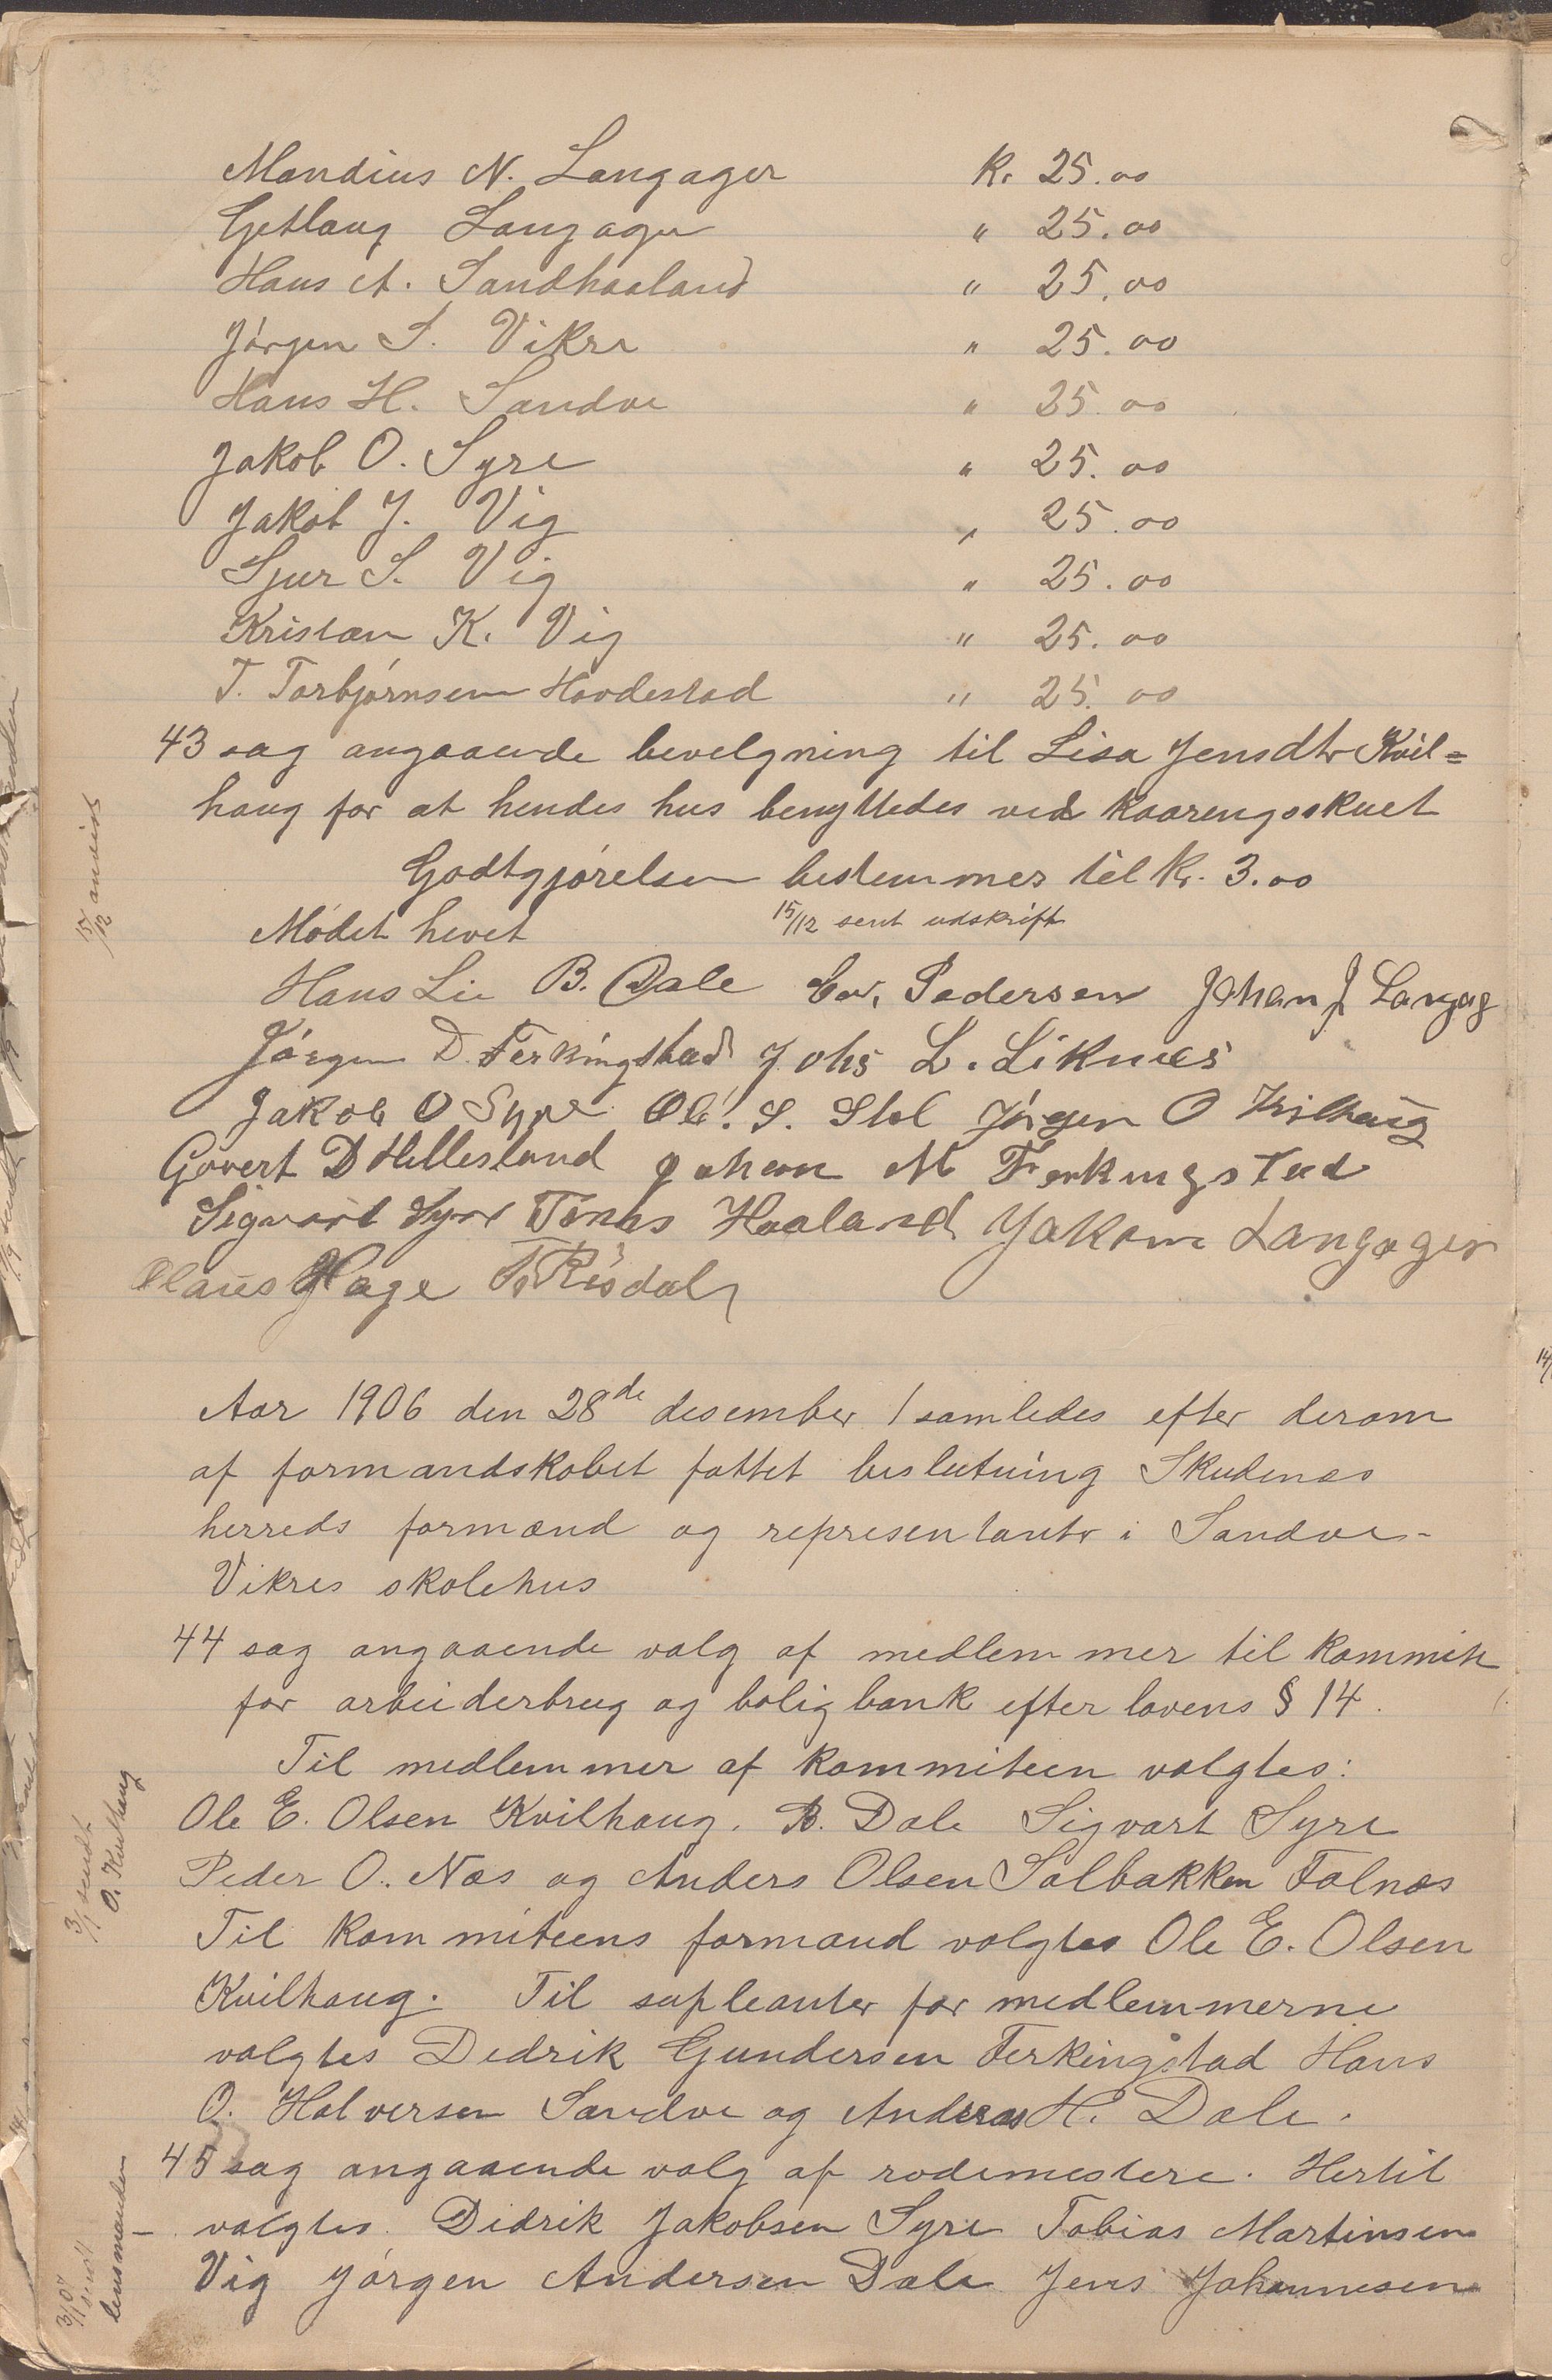 Mandius N. Langager Kr. 25.00
Getlaug Langager " 25.00
Hans A. Sandhaaland " 25.00
Jørgen S. Vikre " 25.00
Hans H. Sandve " 25.00
Jakob O. Syre " 25.00
Jakob J. Vig " 25.00
Sjur S. Vig " 25.00
Kristian K. Vig " 25.00
T. Torbjørnsen Hovdestad " 25.00
43 sag angaaende bevelgning til Lisa Jensdtr Kvil=
haug for at hendes hus benyttedes ved kaaringsskuet
Godtgjørelsen bestemmes til Kr. 3.00
15/12 anvist
Mødet hevet 15/12 sent udskrift
Hans Lie B. Dale Edv. Pedersen Johan J Langag
Jørgen D. Ferkingstad Johs L. Liknes
Jakob O Syre Ole S. Stol Jørgen O Kvilhaug
Govert D Hillesland Johan M Ferkingstad
Sigvart Syre Tønes Haaland Jakom Langager
Claus Hage T. Risdal
Aar 1906 den 28de desember samledes efter derom
af formandskabet fattet beslutning Skudenes
herreds formænd og representanter i Sandve-
Vikres skolehus
44 sag angaaende valg af medlemmer til kommite
for arbeiderbrug og boligbank efter lovens § 14.
Til medlemmer af kommiteen valgtes:
Ole E. Olsen Kvilhaug. B. Dale Sigvart Syre
Peder O. Nes og Anders Olsen Solbakken Falnes
3/1 sendt
O. Kvilhaug
Til kommiteens formand valgtes Ole E. Olsen
Kvilhaug. Til supleanter for medlemmerne
valgtes Dedrik Gundersen Ferkingstad Hans
O. Halversen Sandve og Andreas H. Dale.
45 sag angaaende valg af rodemestere. Hertil
valgtes. Didrik Jakobsen Syre Tobias Martinsen
Vig Jørgen Andersen Dale Jens Johannesen
3/1 07
sendt
lensmanden